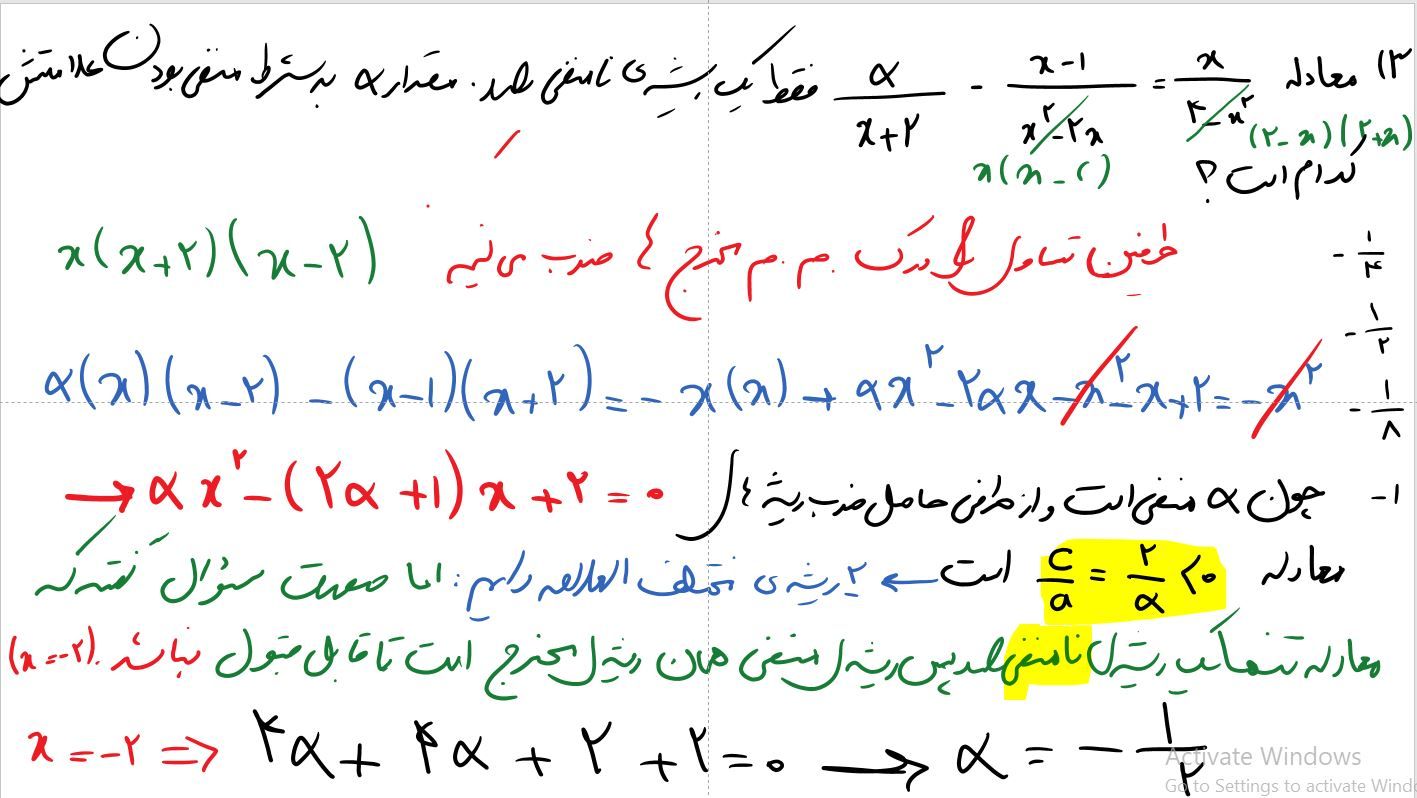 ۳) معادله x/(۴-x²) = (x-۱)/(x²-۲x) - α/(x+۲) فقط یک ریشه‌ی نامنفی دارد. مقدار α به شرط منفی بودن علامتش
(۲-x)(۲+x)
x(x-۲)
کدام است؟
-۱/۴
طرفین تساوی را در ک.م.م مخرج ها ضرب می‌کنیم
x(x+۲)(x-۲)
-۱/۲
α(x)(x-۲) - (x-۱)(x+۲) = - x(x) → αx² - ۲αx - x² - x + ۲ = -x²
-۱/۸
→ αx² - (۲α + ۱)x + ۲ = ۰
-۱
چون α منفی است و از طرفی حاصل ضرب ریشه های
معادله c/a = ۲/α < ۰ است ← ۲ ریشه‌ی مختلف العلامه داریم: اما صورت سؤال گفته که
معادله تنها یک ریشه‌ی نامنفی دارد پس ریشه‌ی منفی همان ریشه‌ی مخرج است تا قابل قبول نباشد. (x=-۲)
x = -۲ ⇒ ۴α + ۴α + ۲ + ۲ = ۰ → α = -۱/۲
Activate Windows
Go to Settings to activate Wind